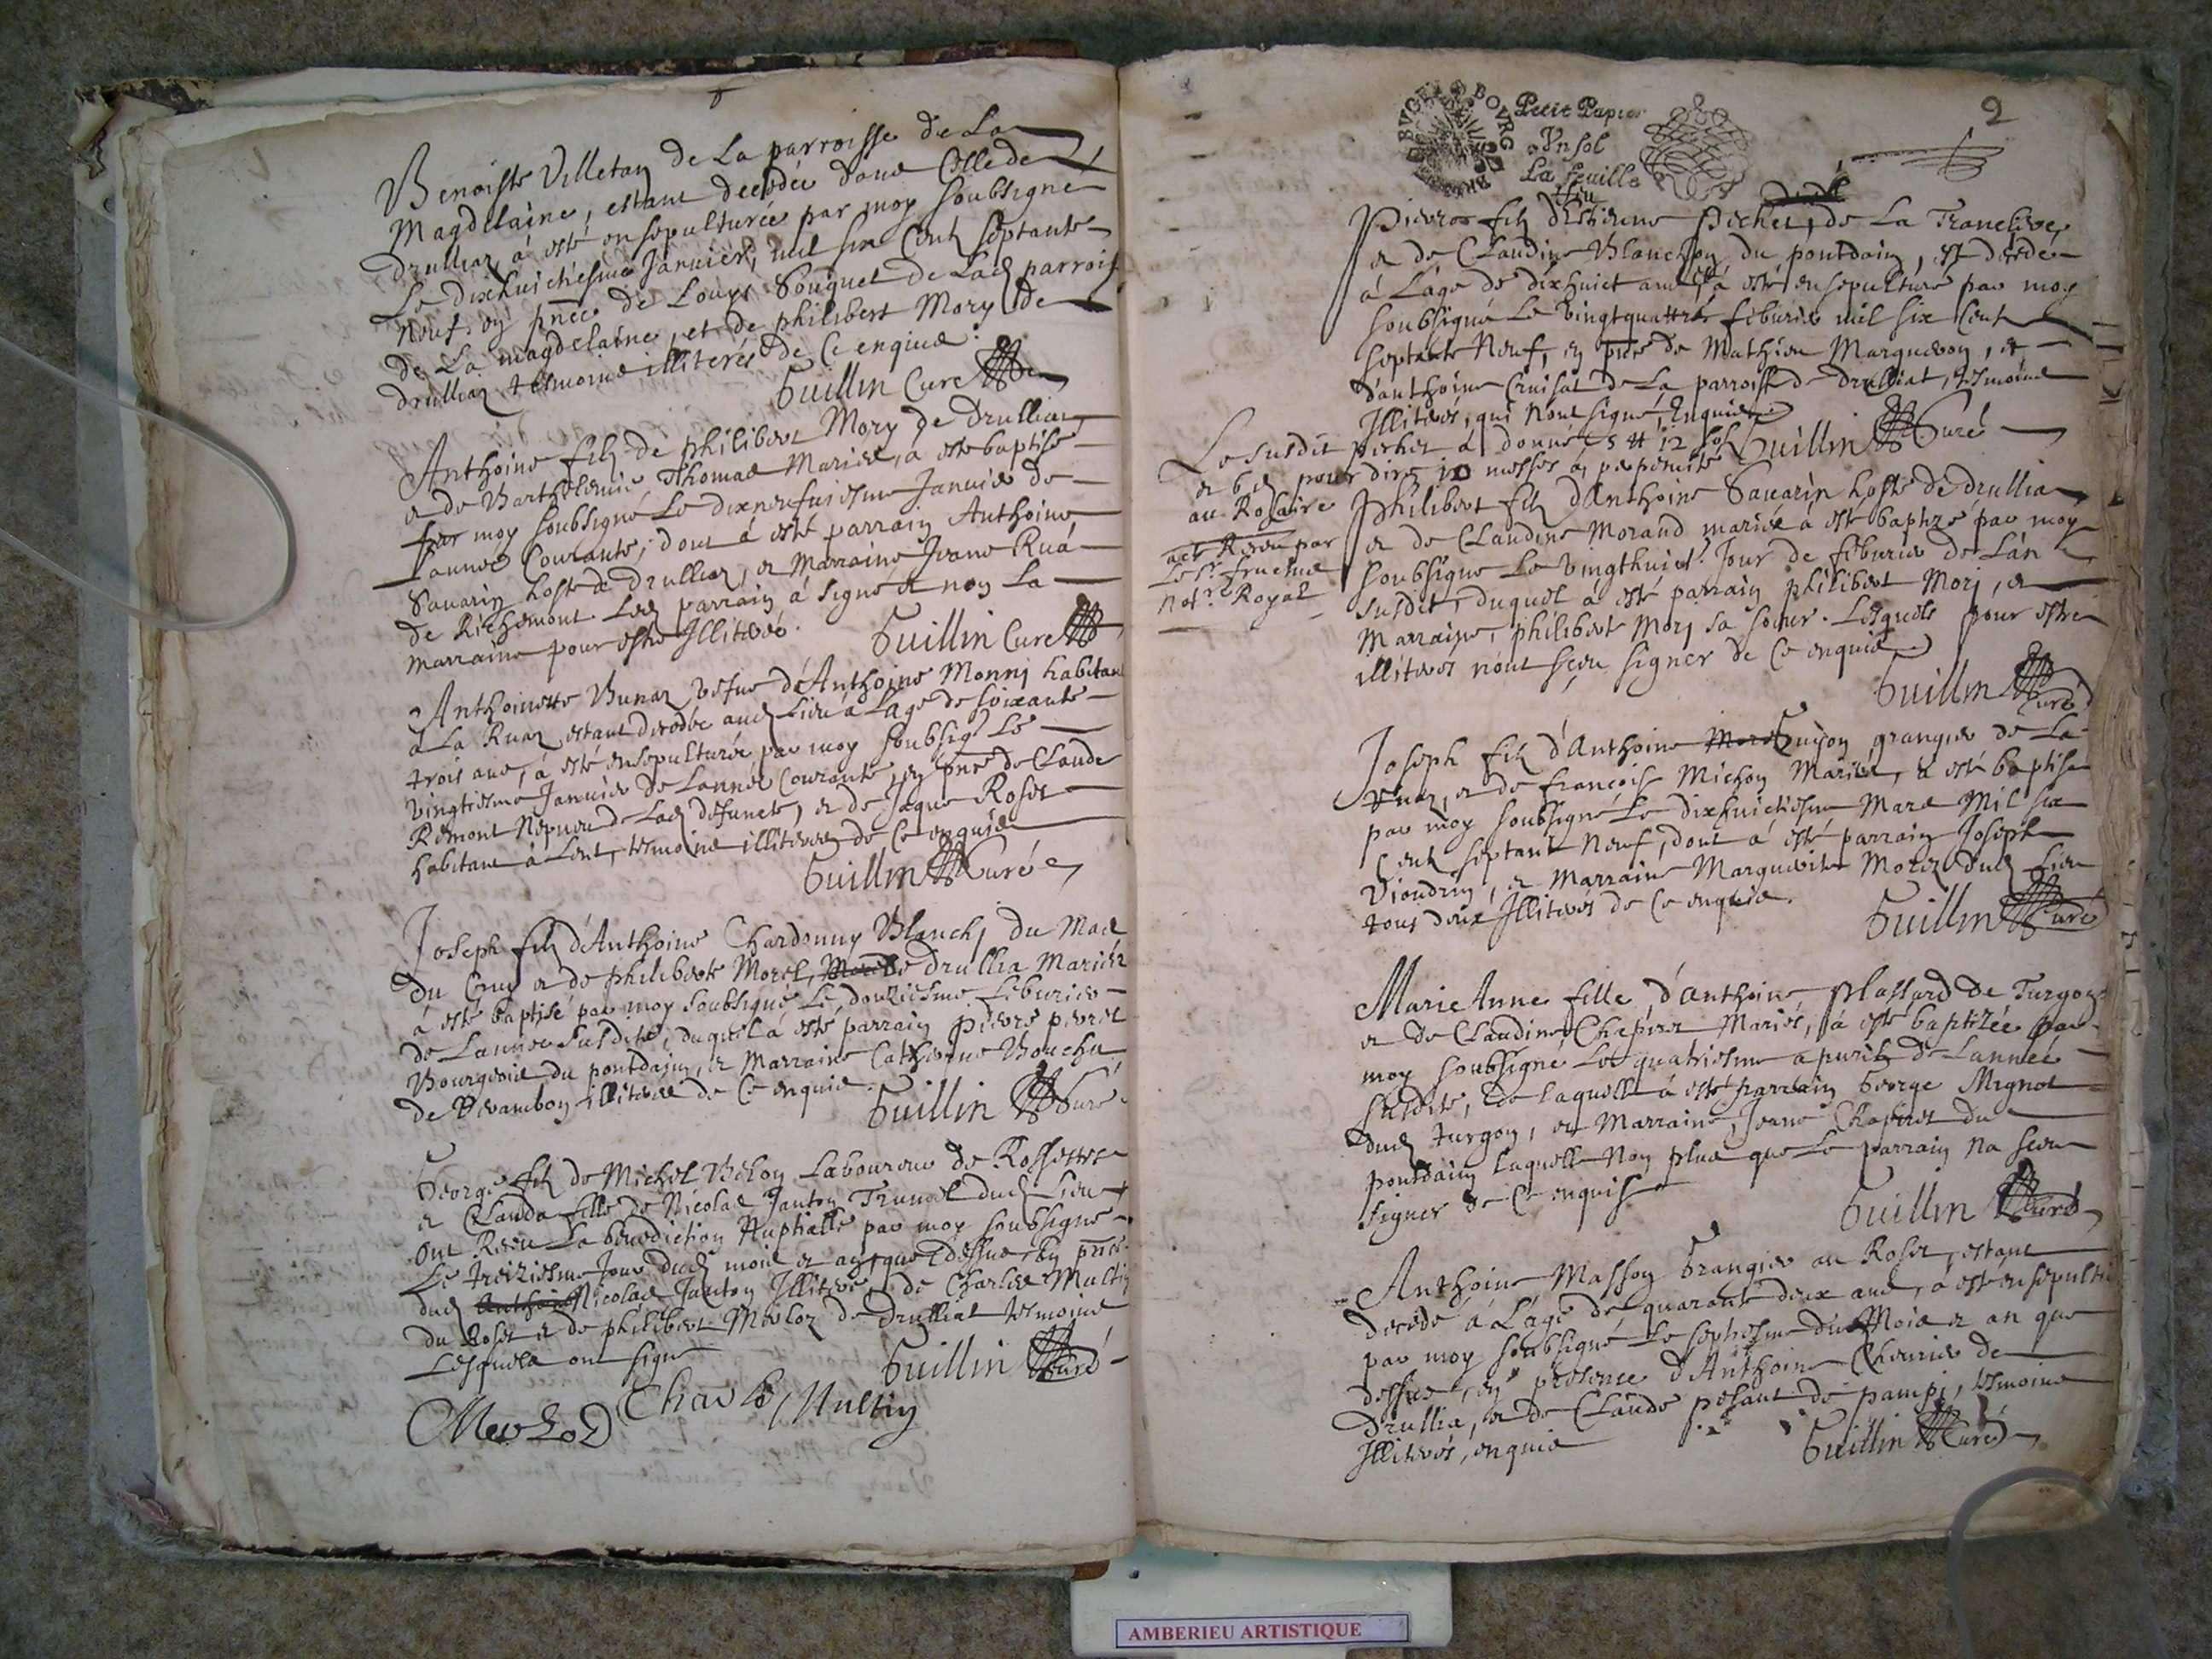 Benoiste Villetan de La parroisse de La
Magdelaine, estant decedée dans Celle de
drulliaz, à esté ensepulturée par moy soubsigné
Le dixhuictiesme Januier, mil six Centz septante
Neuf, en pnce de Louys Souquet de Lad parroisse
de La magdelaine, et de philibert Mory de
drulliaz tesmoins illiterés de Ce enquis.
Guillin Curé
Anthoine filz de philibert Mory de Drulliaz
& de Barthelemie Thomas Mariés, a esté baptisé
par moy soubsigné Le dixneufuiesme Januier de
Lannée Courante, dont à esté parrain Anthoine
Sauarin hoste à drulliaz, & Marraine Jeane Ruá
de Richemont. Led parrain à signé & non La
marraine pour estre Illiteréé.
Guillin Curé
Anthoinette Bunaz vefue d'Anthoine Monnj habitant
à La Ruaz, estant decedée aud Lieu à Lage de soixante
trois ans, à esté ensepulturée par moy soubsigé Le
vingtiesme Januier de Lannée Courante, en pnce de Claude
Remont Nepueu de Lad defuncte, & de Jaque Roset
habitans à Lent, tesmoins illiterés de Ce enquis
Guillin Curé
Joseph filz d'Anthoine Chardonny Blanchj du Mas
du Cruy & de philiberte Morel, de Drullia Mariés
à esté baptisé par moy soubsigné Le douziesme feburier
de Lannée susdite, duquel à esté parrain pierre peuret
Bourgeois du pontdain, & Marraine Catherine Bouchu
de Varambon illiteréé de Ce enquis.
Guillin Curé
George filz de Michel Velon Laboureur de Rossettes
& Clauda fille de Nicolas Janton Trunel dud Lieu
ont Receu La benediction Nuptialle par moy soubsigné
Le treiziesme Jour dud mois & an que dessus, En pnce
dud Nicolas Janton Illiteré, & de Charles Multin
du Roset & de philibert Merloz de Drulliat tesmoins
Lesquels ont signé
Guillin Curé
Merloz Charle Multin
2
BVGEY BOVRG
Petit Papier
Vn sol
La feuille
Pierre filz d'Estienne Pichet, de La Trancliere,
& de Claudine Blanchon du pontdain, est décedé
à Láge de dixhuict ans, & à esté ensepulturé par moy
soubsigné Le vingtquattre feburier mil six Centz
septante Neuf, en pnce de Mathieu Margueron, &
d'anthoine Cruisat de La parroisse de drulliat, tesmoins
Illiterés, qui n'ont signé, Enquis.
Guillin Curé
Le susdit pichet à donné 5 tt 12 sols
& 6 d pour dire 10 messes à perpetuité
au Rosaire
acte Receu par
Le Sr.
Notre Royal
Philibert filz d'Anthoine Sauarin hoste de drullia
& de Claudine Morand mariés à esté baptizé par moy
soubsigné Le vingthuict Jour de feburier de Lán
susdit, duquel à esté parrain philibert Morj, &
Marraine, philiberte Morj sa soeur. Lesquels pour estre
illiterés n'ont sçeu signer de Ce enquis.
Guillin Curé
Joseph filz d'Anthoine Guyon grangier de La
Ruaz, & de françoise Michon Mariés, à esté baptisé
par moy soubsigné Le dixhuictiesme Mars Mil six
Centz septante Neuf, dont à esté parrain Joseph
Vioudrin, & Marraine Marguerite Morez dud Lieu
tous deux Illiterés de Ce enquis.
Guillin Curé
Marie Anne fille d'Anthoine Massard de Turgon
& de Claudine Chapirez Mariés, à esté baptizée par
moy soubsigné Le quatriesme apuril de Lannée
susdite, de laquelle à esté parrain George Mignot
dud turgon, & Marraine Jeane Chapiret du
pontdain laquelle Non plus que Le parrain Na sceu
signer de Ce enquise
Guillin Curé
Anthoine Masson Grangier au Roset, estant
decedé à Láge de quarante deux ans, à esté ensepulturé
par moy soubsigné Le septiesme du Mois & an que
dessus, en presence d'Anthoine Cheurier de
Drullia, & de Claude pesant de pampj, tesmoins
Illiterés, enquis
Guillin Curé
AMBERIEU ARTISTIQUE